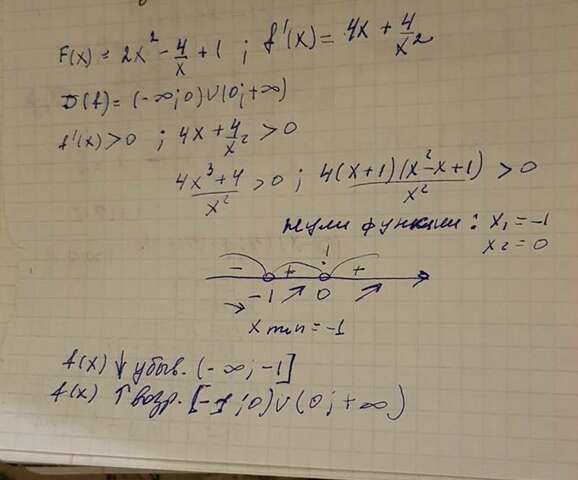 F(x) = 2x² - 4/x + 1 ; f'(x) = 4x + 4/x²
D(f) = (-∞; 0) ∪ (0; +∞)
f'(x) > 0 ; 4x + 4/x² > 0
(4x³ + 4)/x² > 0 ; 4(x+1)(x²-x+1)/x² > 0
Нули функции : x₁ = -1
x₂ = 0
- + ! +
-1 0
x min = -1
f(x) ↓ убыв. (-∞; -1]
f(x) ↑ возр. [-1; 0) ∪ (0; +∞)